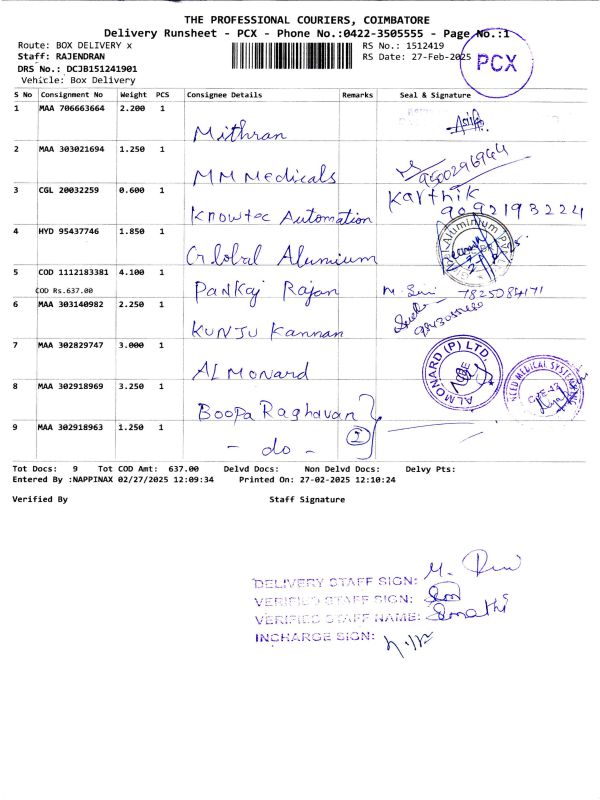 THE PROFESSIONAL COURIERS, COIMBATORE
Delivery Runsheet - PCX - Phone No.:0422-3505555 - Page No.:1
Route: BOX DELIVERY x
RS No.: 1512419
Staff: RAJENDRAN
RS Date: 27-Feb-2025
DRS No.: DCJB151241901
Vehicle: Box Delivery
PCX
S No Consignment No Weight PCS Consignee Details Remarks Seal & Signature
1 MAA 706663664 2.200 1 Mithran
2 MAA 303021694 1.250 1 MM Medicals 9500296964
3 CGL 20032259 0.600 1 Knowtec Automation Karthik 9092193224
4 HYD 95437746 1.850 1 Global Alumium
5 COD 1112183381 4.100 1 Pankaj Rajan 7825084171
COD Rs.637.00
6 MAA 303140982 2.250 1 Kunju Kannan
7 MAA 302829747 3.000 1 ALMonard ALMONARD (P) LTD.
8 MAA 302918969 3.250 1 Boopa Raghavan NEED MEDICAL SYSTEMS
9 MAA 302918963 1.250 1 - do - 2
Tot Docs: 9 Tot COD Amt: 637.00 Delvd Docs: Non Delvd Docs: Delvy Pts:
Entered By :NAPPINAX 02/27/2025 12:09:34 Printed On: 27-02-2025 12:10:24
Verified By Staff Signature
DELIVERY STAFF SIGN:
VERIFIED STAFF SIGN:
VERIFIED STAFF NAME:
INCHARGE SIGN: